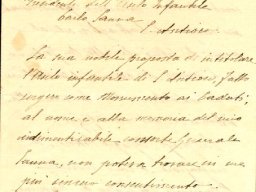 Presidente dell'Asilo Infantile
Carlo Sanna
S. Antioco
La sua nobile proposta di intitolare
l'Asilo infantile di S. Antioco, fatto
sorgere come Monumento ai Caduti,
al nome e alla memoria del mio
indimenticabile consorte Generale
Sanna, non poteva trovare in me
più sincero consentimento